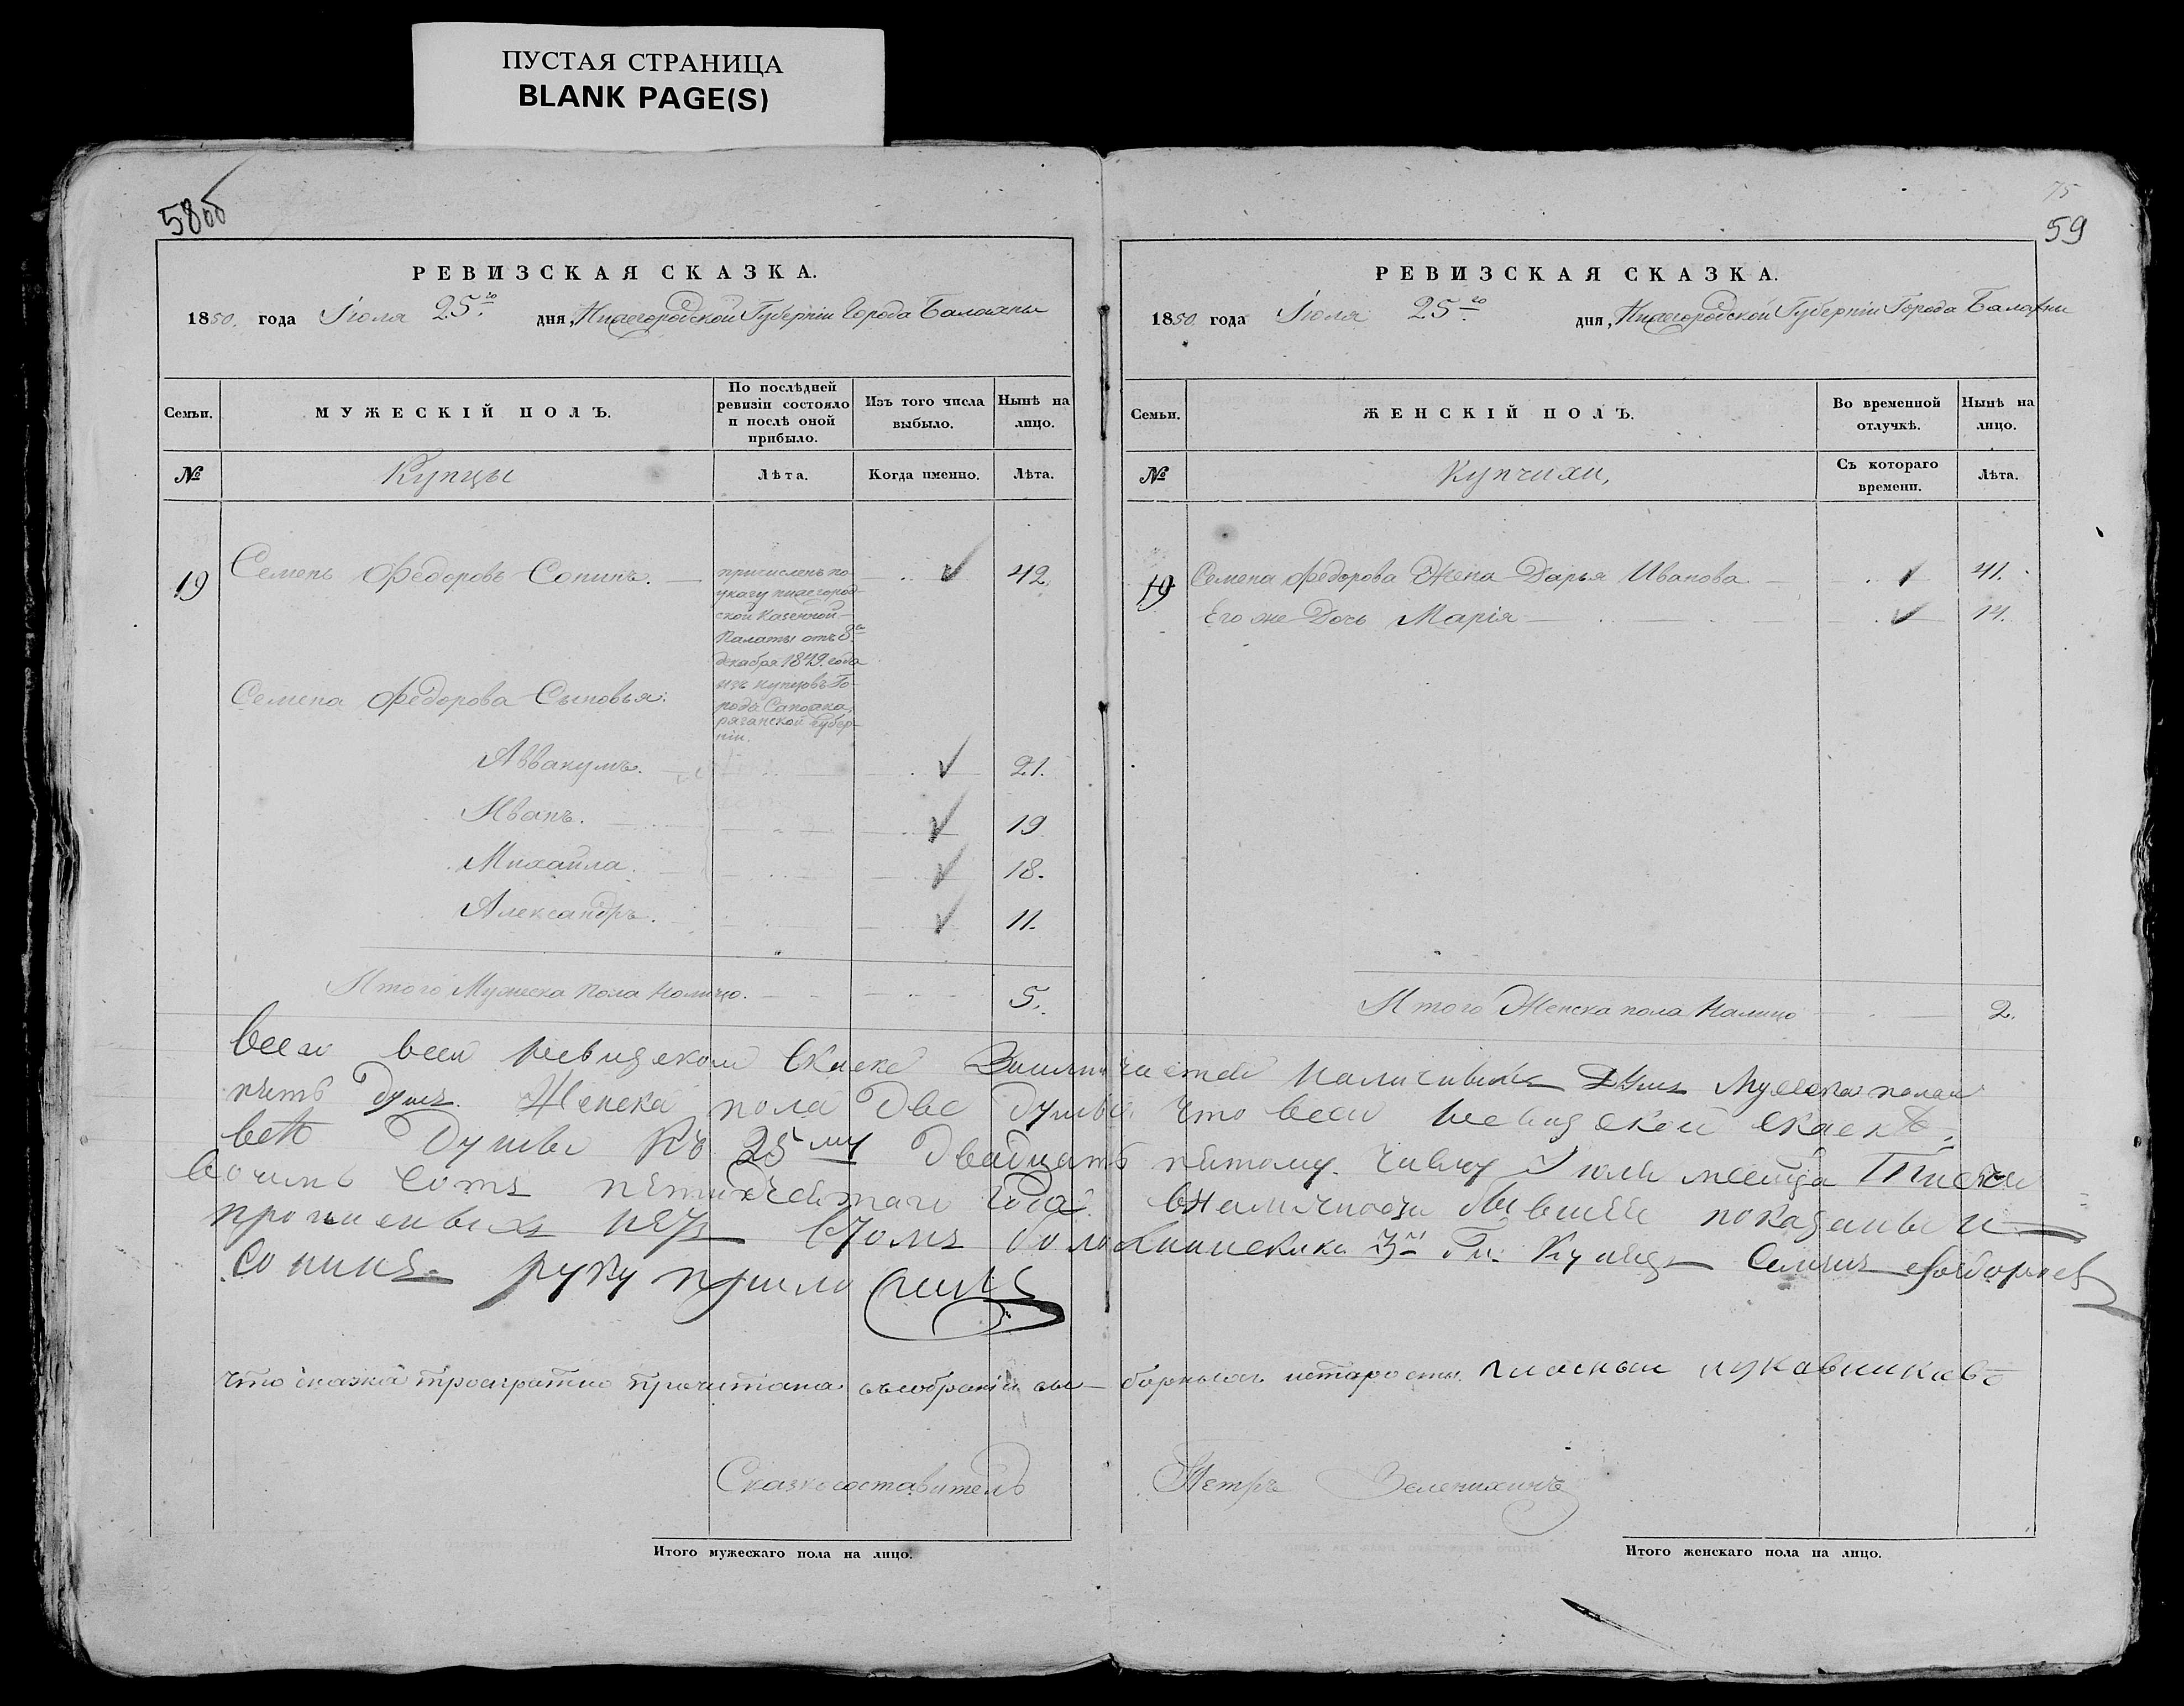 ПУСТАЯ СТРАНИЦА
BLANK PAGE(S)
58об
РЕВИЗСКАЯ СКАЗКА.
1850. года Іюля 25го дня, Нижегородской Губерніи Города Балахны
Семьи.
МУЖЕСКІЙ ПОЛЪ.
По послѣдней
ревизіи состояло
и послѣ оной
прибыло.
Изъ того числа
выбыло.
Нынѣ на
лицо.
№
Купцы
Лѣта.
Когда именно.
Лѣта.
19
Семенъ Федоровъ Сопинъ.
причисленъ по
указу нижегород-
ской Казенной
Палаты отъ 8го
декабря 1849. года
изъ купцовъ Го-
рода Сапожка,
рязанской губер-
ніи.
42.
Семена Федорова Сыновья:
Аввакумъ. 21.
Иванъ. 19
Михайла. 18.
Александръ. 11.
Итого Мужеска пола Налицо. 5.
75
59
РЕВИЗСКАЯ СКАЗКА.
1850 года Іюля 25го дня, Нижегородской Губерніи Города Балахны
Семьи.
ЖЕНСКІЙ ПОЛЪ.
Во временной
отлучкѣ.
Нынѣ на
лицо.
№
Купчихи,
Съ котораго
времени.
Лѣта.
19
Семена Федорова Жена Дарья Иванова 41.
Его же Дочь Марія 14.
Итого Женска пола Налицо 2.
всего всей ревизской скаске душъ
пять душъ. Женска пола две душы что всеи ревизской скаске
все душы къ 25му двадцать пятому числу Июля месяца
сотъ года показаны и
3й Ги: Купецъ Семенъ
Сопинъ руку приложилъ
что сказка троекратно прочитана въ собраніи вы- борныхъ
Сказкосоставитель Петръ Зеленихинъ
Итого мужескаго пола на лицо.
Итого женскаго пола на лицо.